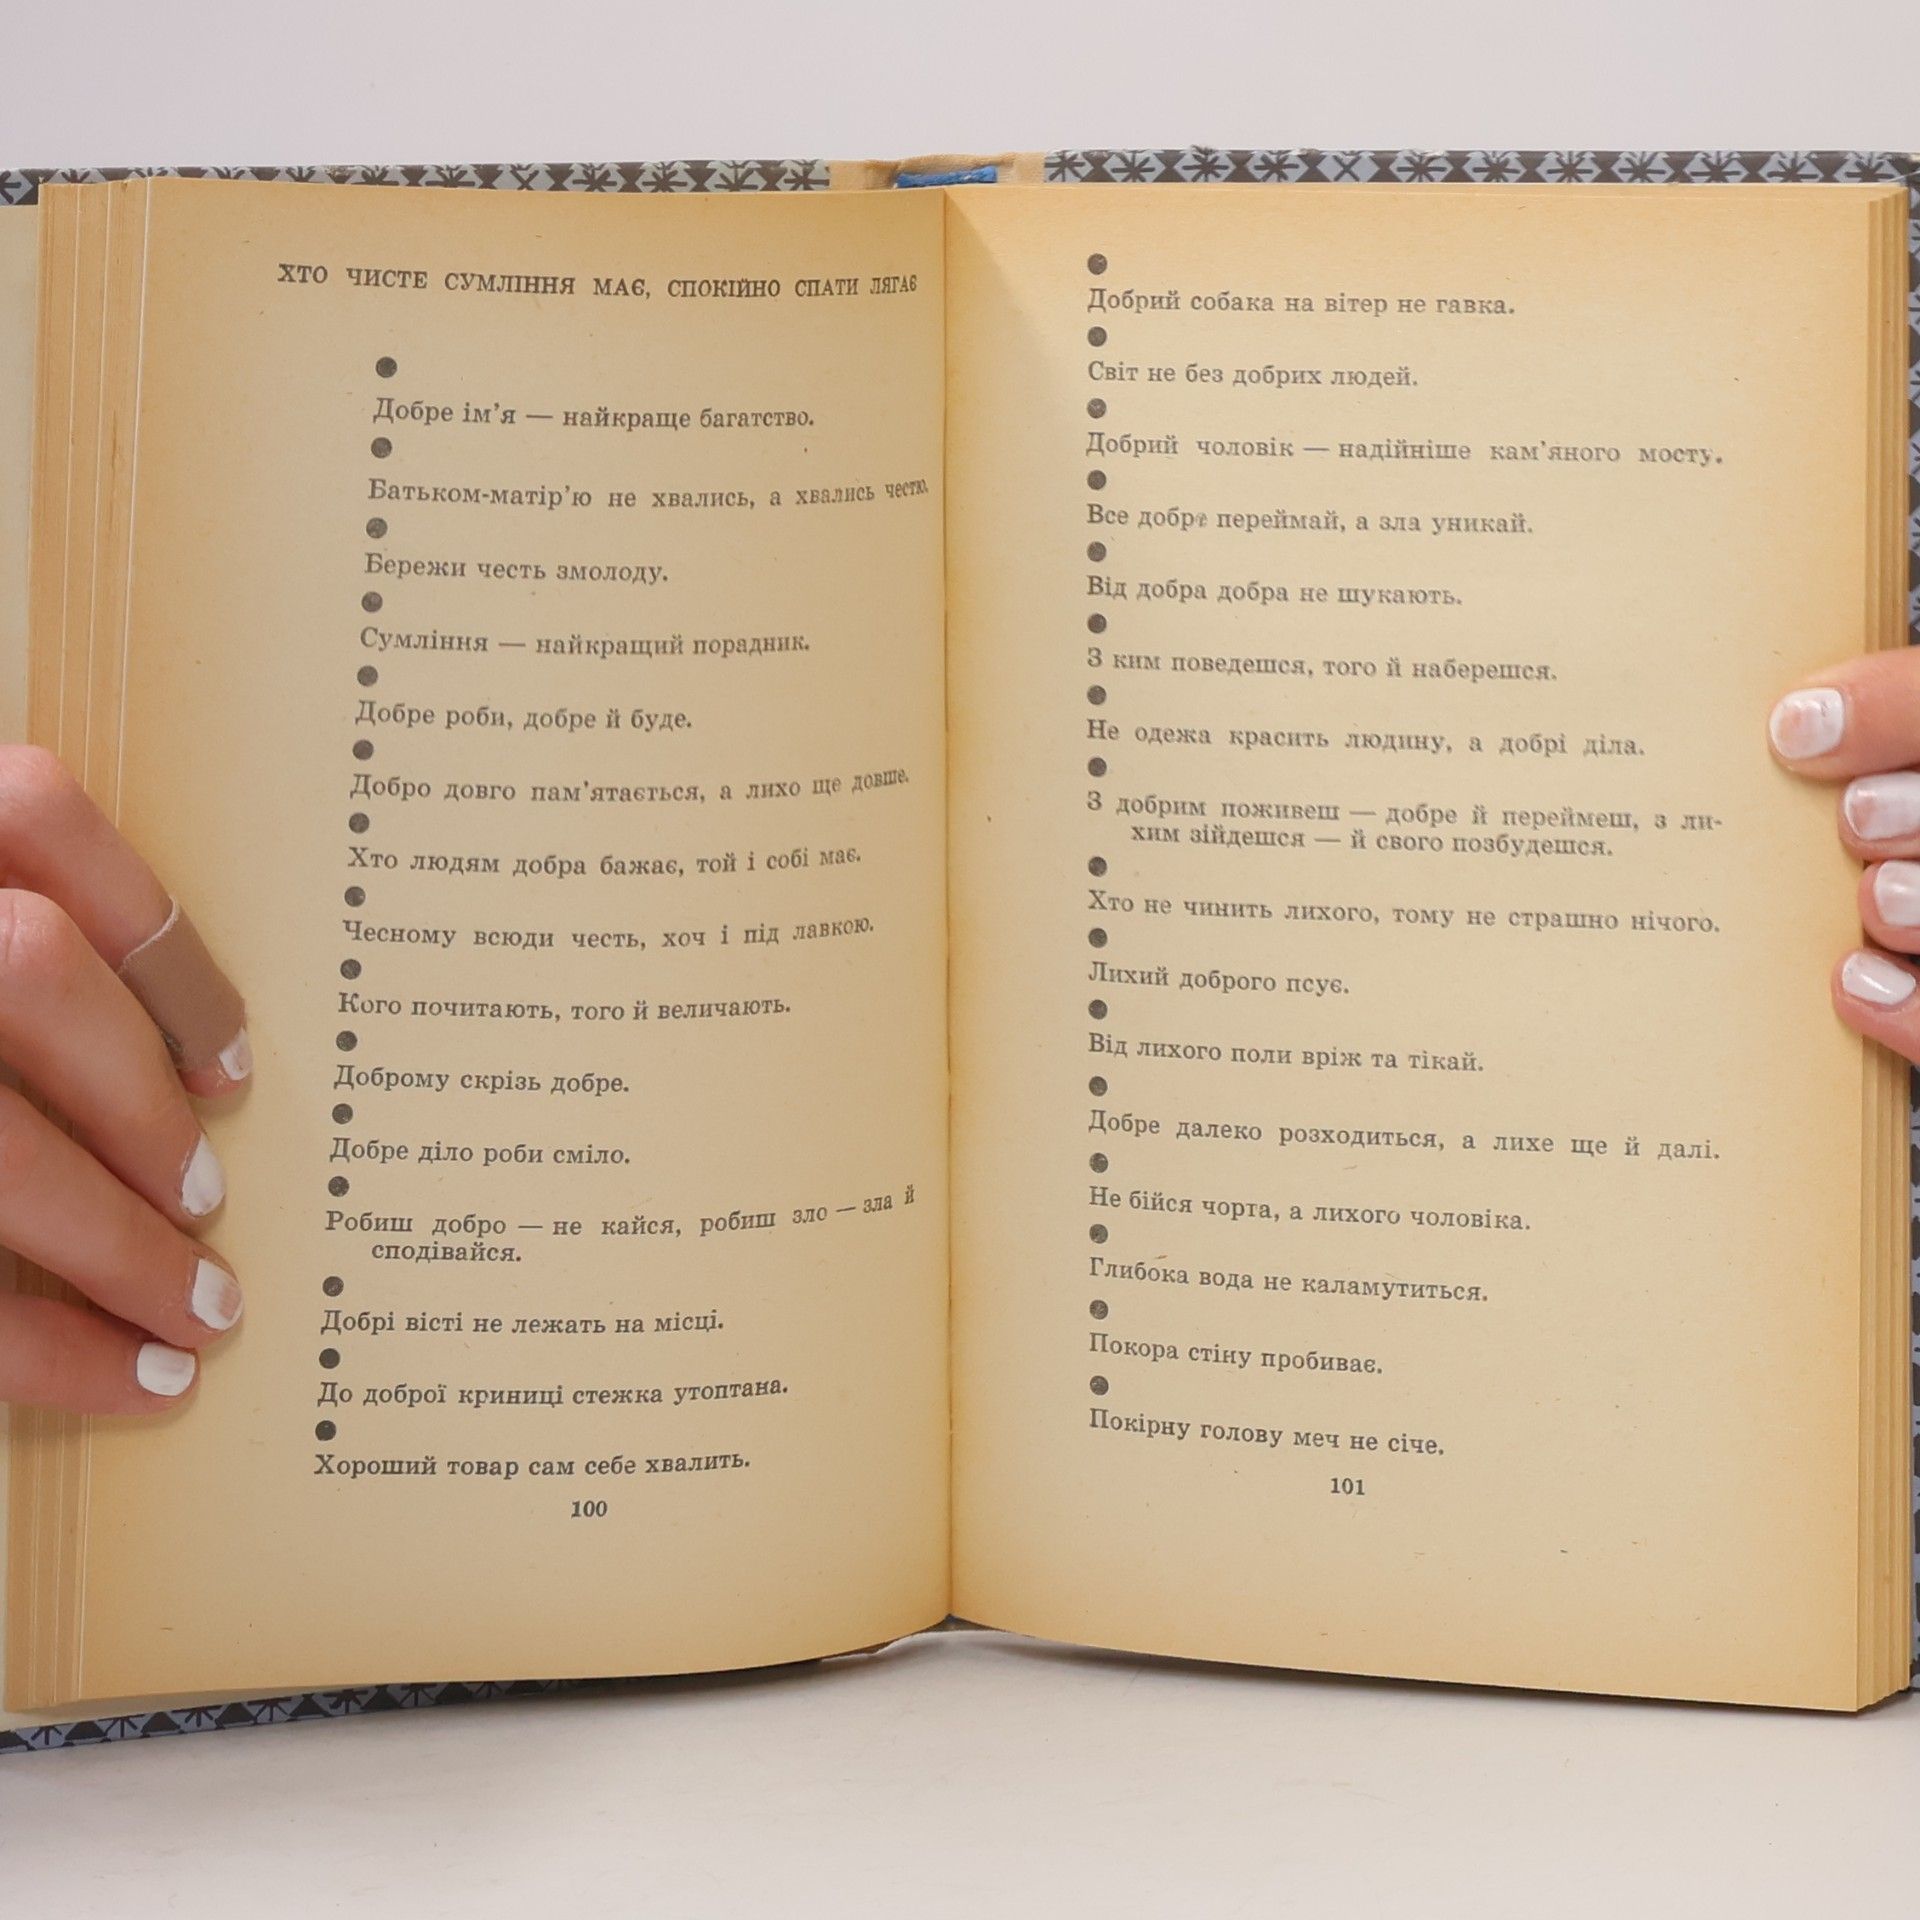 ХТО ЧИСТЕ СУМЛІННЯ МАЄ, СПОКІЙНО СПАТИ ЛЯГАЄ
Добре ім’я — найкраще багатство.
Батьком-матір’ю не хвались, а хвались честю.
Бережи честь змолоду.
Сумління — найкращий порадник.
Добре роби, добре й буде.
Добро довго пам’ятається, а лихо ще довше.
Хто людям добра бажає, той і собі має.
Чесному всюди честь, хоч і під лавкою.
Кого почитають, того й величають.
Доброму скрізь добре.
Добре діло роби сміло.
Робиш добро — не кайся, робиш зло — зла й
сподівайся.
Добрі вісті не лежать на місці.
До доброї криниці стежка утоптана.
Хороший товар сам себе хвалить.
100
Добрий собака на вітер не гавка.
Світ не без добрих людей.
Добрий чоловік — надійніше кам’яного мосту.
Все добре переймай, а зла уникай.
Від добра добра не шукають.
З ким поведешся, того й наберешся.
Не одежа красить людину, а добрі діла.
З добрим поживеш — добре й переймеш, з ли-
хим зійдешся — й свого позбудешся.
Хто не чинить лихого, тому не страшно нічого.
Лихий доброго псує.
Від лихого поли вріж та тікай.
Добре далеко розходиться, а лихе ще й далі.
Не бійся чорта, а лихого чоловіка.
Глибока вода не каламутиться.
Покора стіну пробиває.
Покірну голову меч не січе.
101